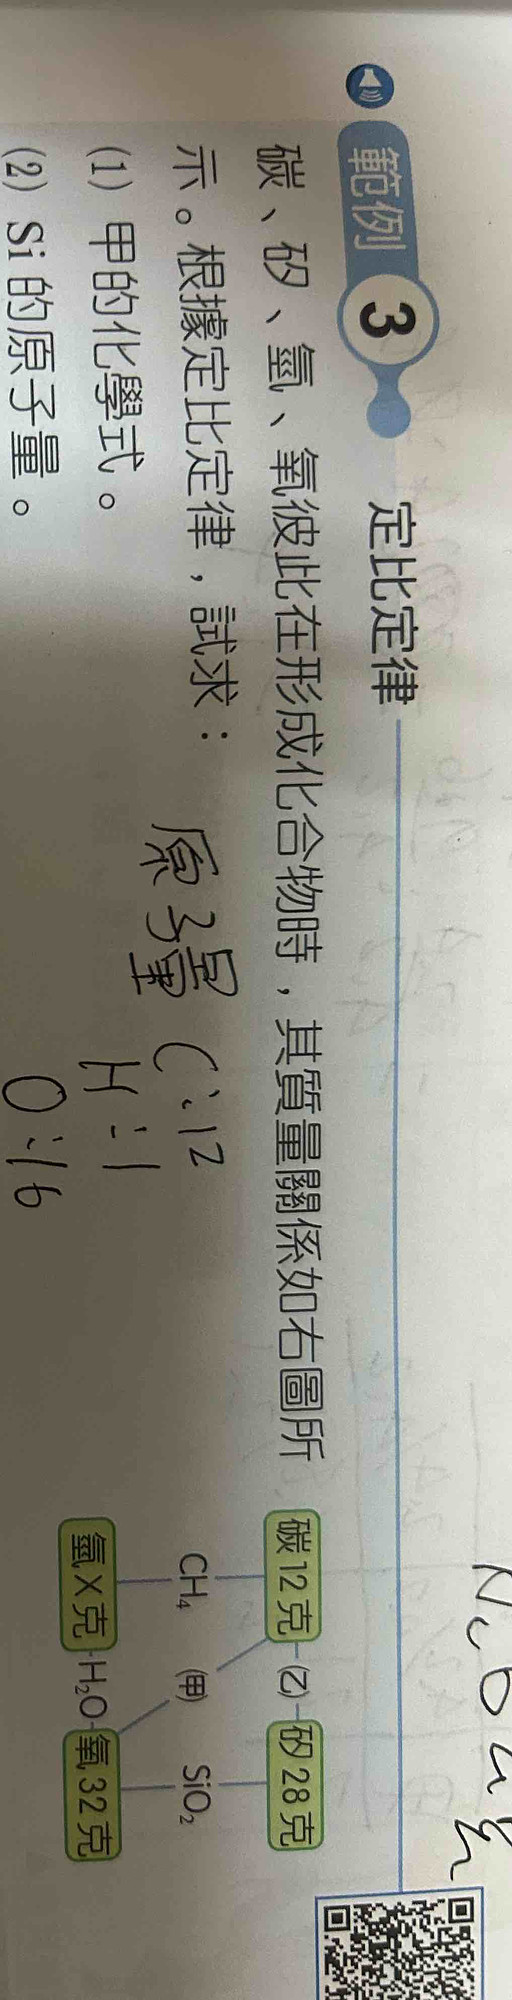 範例 3 定比定律
碳、矽、氫、氧彼此在形成化合物時，其質量關係如右圖所
示。根據定比定律，試求：
(1) 甲的化學式。
(2) Si 的原子量。
原子量 C:12
H:1
O:16
碳12克 (乙) 矽28克
CH₄ (甲) SiO₂
氫X克 H₂O 氧32克